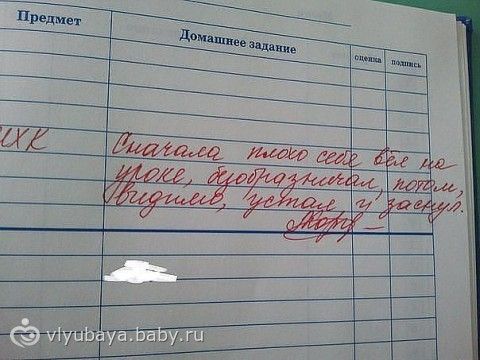 Предмет
Домашнее задание
оценка
подпись
МХК
Сначала плохо себе вёл на
уроке, безобразничал, потом,
видимо, устал и заснул.
vlyubaya.baby.ru